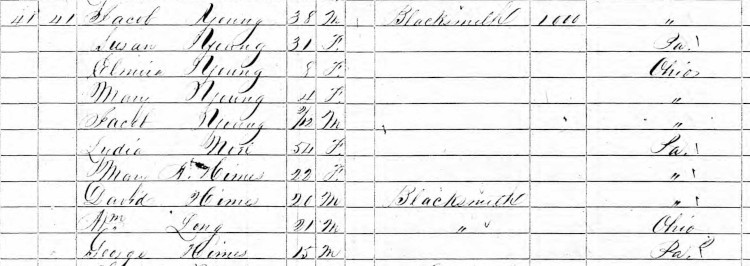 41 41 Jacob Young 38 M Blacksmith 1000 "
Susan Young 31 F. Pa.
Elmira Young 8 F. Ohio
Mary Young 4 F. "
Jacob Young 2/12 M "
Lydia 54 F Pa.
Mary A. Himes 22 F. "
David Himes 20 M Blacksmith "
Wm Long 21 M " Ohio
George Himes 15 M Pa.